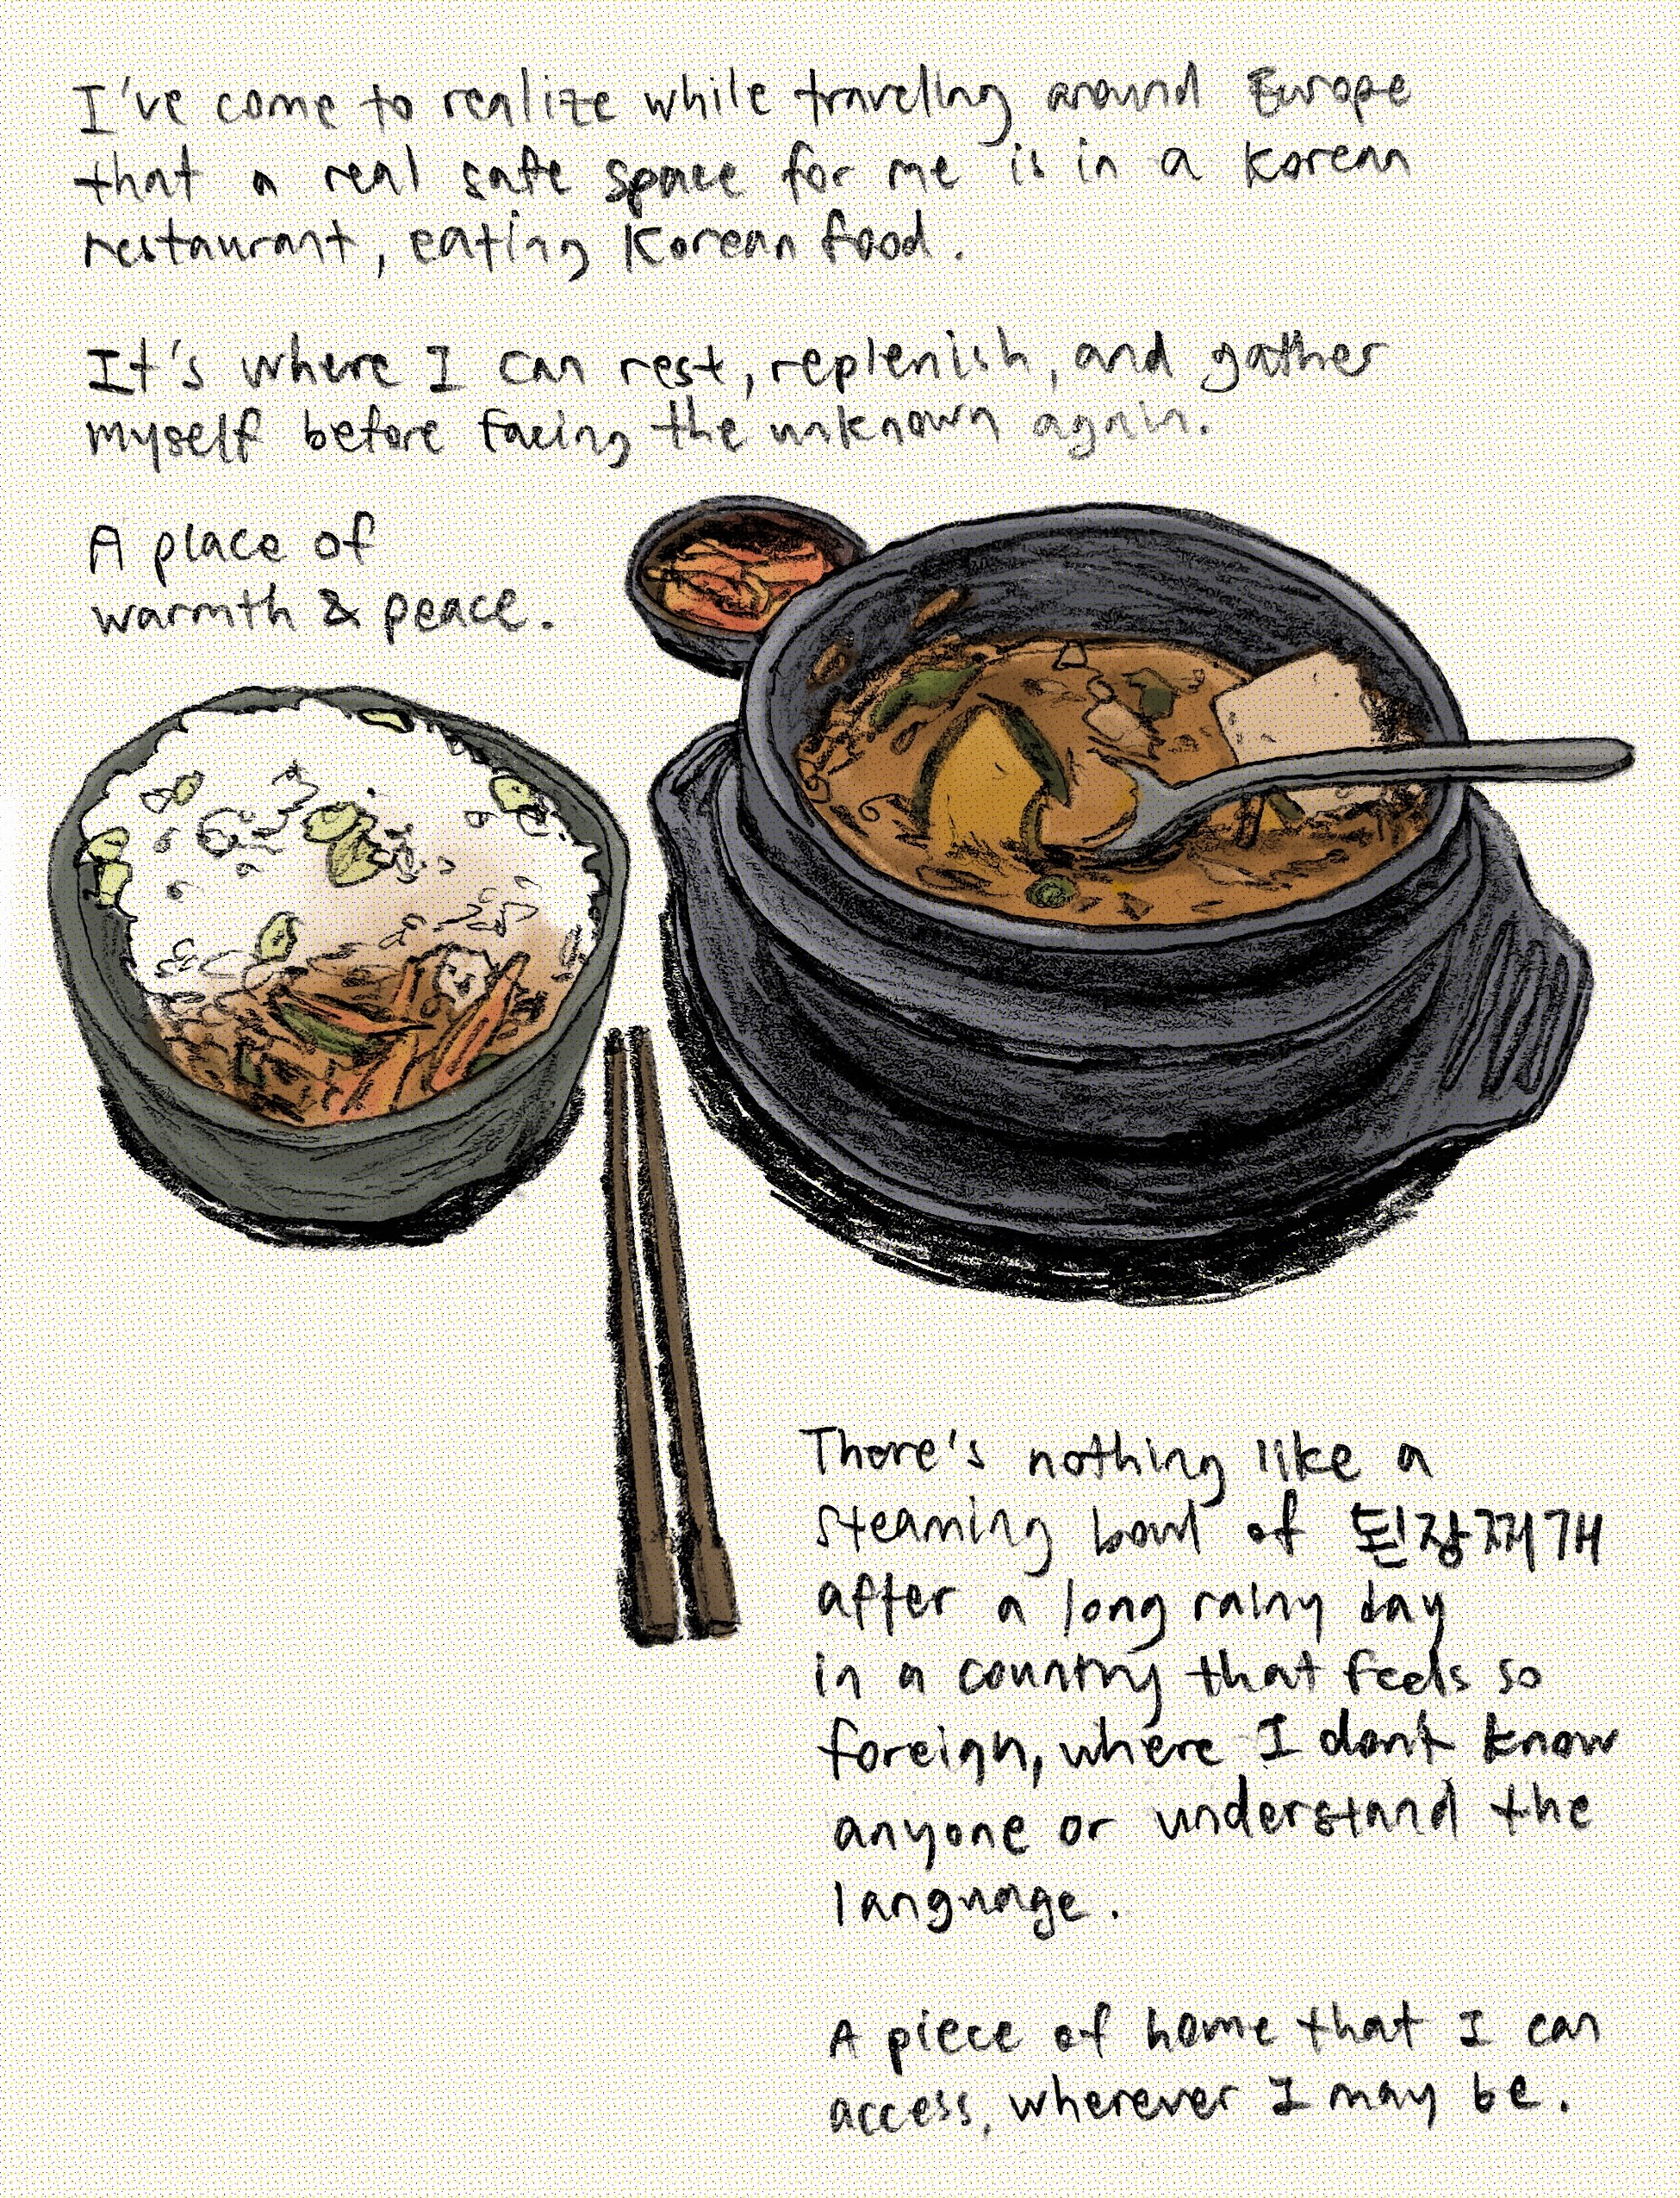 I've come to realize while traveling around Europe
that a real safe space for me is in a Korean
restaurant, eating Korean food.
It's where I can rest, replenish, and gather
myself before facing the unknown again.
A place of
warmth & peace.
There's nothing like a
steaming bowl of 된장찌개
after a long rainy day
in a country that feels so
foreign, where I dont know
anyone or understand the
language.
A piece of home that I can
access, wherever I may be.